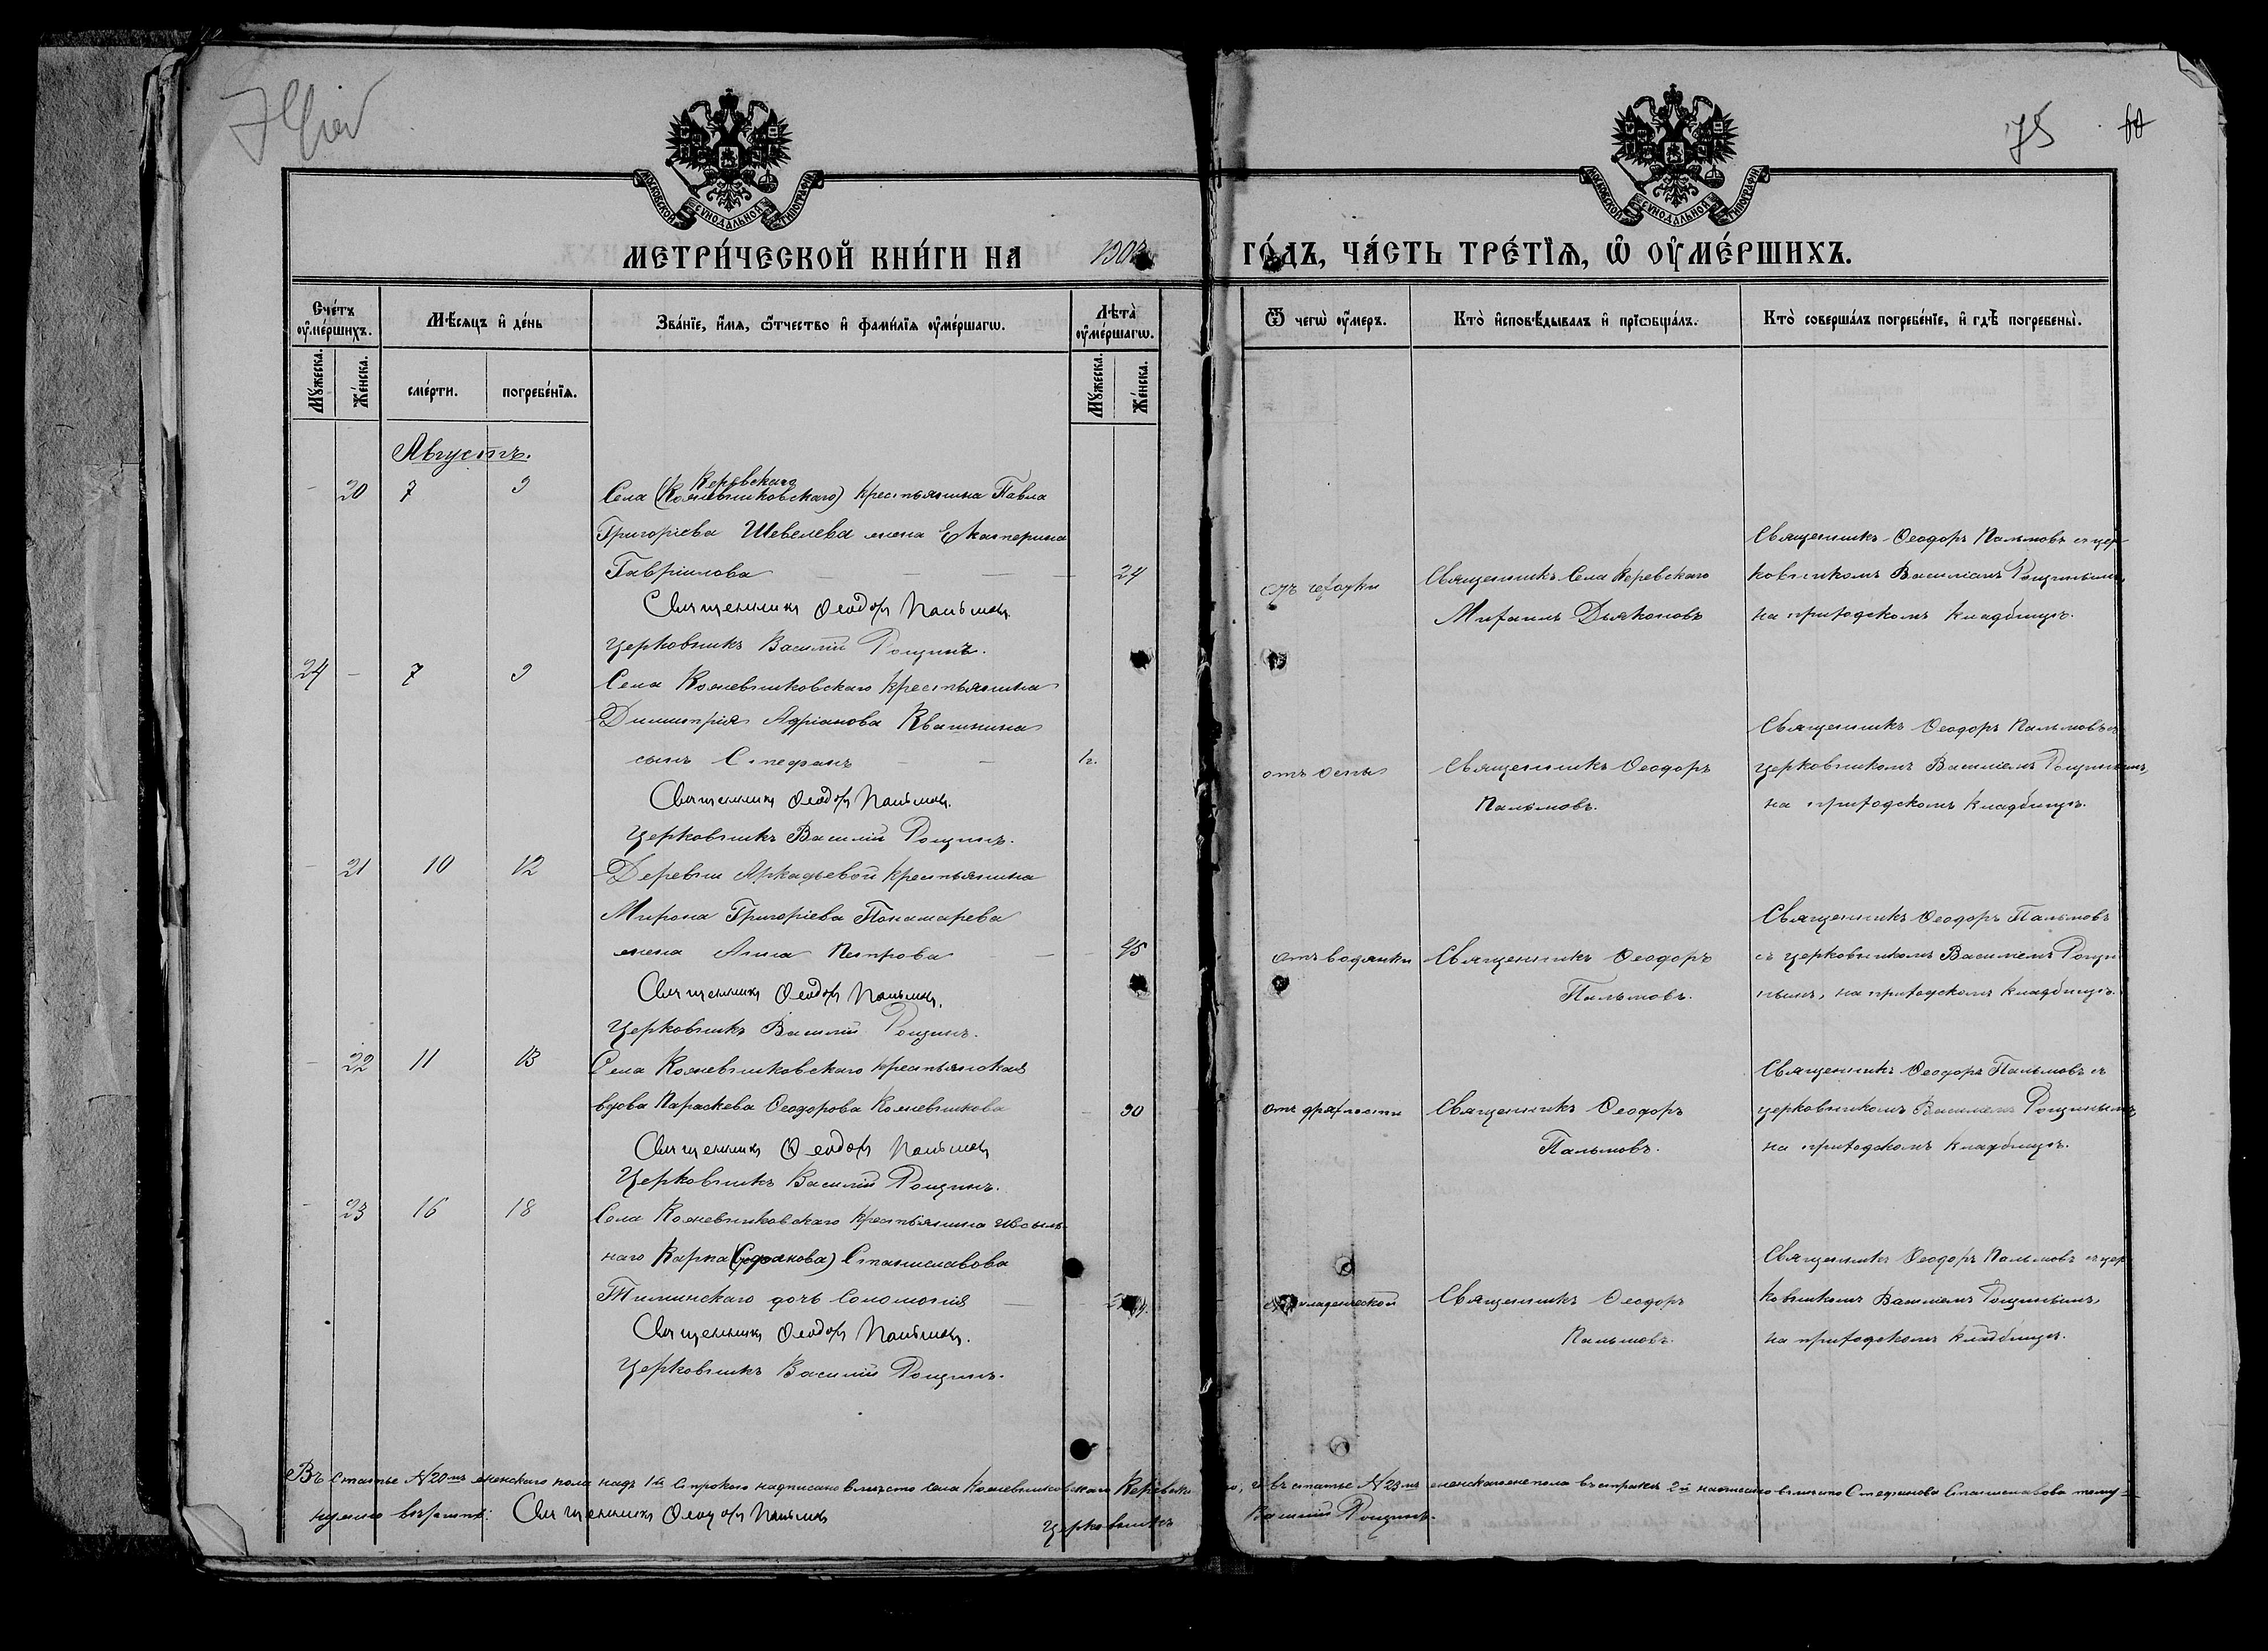 75
МОСКОВСКОЙ СѴНОДАЛЬНОЙ ТИПОГРАФІИ
МОСКОВСКОЙ СѴНОДАЛЬНОЙ ТИПОГРАФІИ
МЕТРИ́ЧЕСКОЙ КНИ́ГИ НА 190 ГО́ДЪ, ЧА́СТЬ ТРЕ́ТЇѦ, Ѡ҆ ОУ҆МЕ́РШИХЪ.
Сче́тъ оу҆ме́ршихъ.
Мѣ́сѧцъ и҆ де́нь
Зва́нїе, и҆́мѧ, ѻ҆́тчество и҆ фами́лїѧ оу҆ме́ршагѡ.
Лѣ́та оу҆ме́ршагѡ.
Ѿ чегѡ̀ оу҆́меръ.
Кто̀ и҆сповѣ́дывалъ и҆ прїѡбща́лъ.
Кто̀ соверша́лъ погребе́нїе, и҆ гдѣ̀ погребены̀.
Мꙋ́жеска.
Же́нска.
сме́рти.
погребе́нїѧ.
Мꙋ́жеска.
Же́нска.
Августъ.
- 20 7 9
Керевскаго
Села (Кожевниковскаго) крестьянина Павла
Григоріева Шевелева жена Екатерина
Гавріилова 24
Священникъ Ѳеодоръ Пальмовъ.
Церковникъ Василій Рощинъ.
отъ чахотки
Священникъ Села Керевскаго
Михаилъ Дьяконовъ
Священникъ Ѳеодоръ Пальмовъ съ цер-
ковникомъ Василіемъ Рощинымъ
на приходскомъ кладбищѣ.
24 - 7 9
Села Кожевниковскаго крестьянина
Димитрія Адріанова Квашнина
сынъ Стефанъ 1г.
Священникъ Ѳеодоръ Пальмовъ.
Церковникъ Василій Рощинъ.
отъ оспы
Священникъ Ѳеодоръ
Пальмовъ.
Священникъ Ѳеодоръ Пальмовъ съ
церковникомъ Василіемъ Рощинымъ,
на приходскомъ кладбищѣ.
- 21 10 12
Деревни Аркадьевой крестьянина
Мирона Григоріева Понамарева
жена Анна Петрова 45
Священникъ Ѳеодоръ Пальмовъ.
Церковникъ Василій Рощинъ.
отъ водянки
Священникъ Ѳеодоръ
Пальмовъ.
Священникъ Ѳеодоръ Пальмовъ
съ церковникомъ Василіемъ Рощи-
нымъ, на приходскомъ кладбищѣ.
- 22 11 13
Села Кожевниковскаго крестьянская
вдова Параскева Ѳеодорова Кожевникова 90
Священникъ Ѳеодоръ Пальмовъ
Церковникъ Василій Рощинъ.
отъ дряхлости
Священникъ Ѳеодоръ
Пальмовъ.
Священникъ Ѳеодоръ Пальмовъ съ
церковникомъ Василіемъ Рощинымъ,
на приходскомъ кладбищѣ.
- 23 16 18
Села Кожевниковскаго крестьянина
наго Карпа (Стефанова) Станиславова
Тиминскаго дочь Соломонія
Священникъ Ѳеодоръ Пальмовъ.
Церковникъ Василій Рощинъ.
младенческой
Священникъ Ѳеодоръ
Пальмовъ.
Священникъ Ѳеодоръ Пальмовъ съ цер-
ковникомъ Василіемъ Рощинымъ,
на приходскомъ кладбищѣ.
Въ статье №20мъ женскаго пола надъ 1й строкою надписано вмѣсто села Кожевниковскаго Керевскаго, и въ статье №23мъ женскаго же пола въ строкѣ 2й написано вмѣсто Стефанова Станиславова тому
вѣрить. Священникъ Ѳеодоръ Пальмовъ Церковникъ Василій Рощинъ.